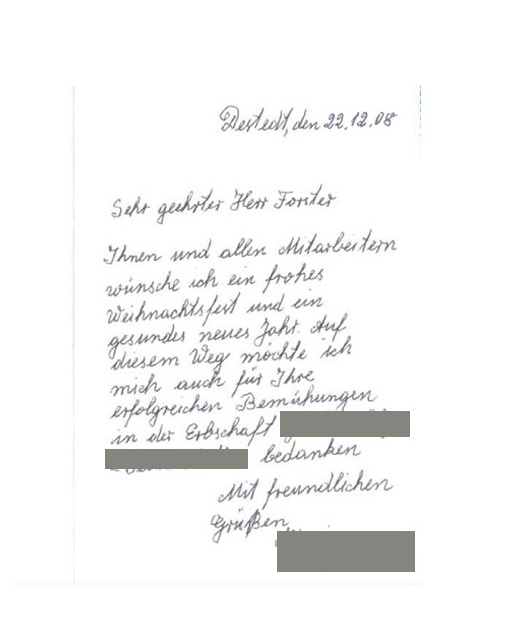 Destedt, den 22.12.08
Sehr geehrter Herr Forster
Ihnen und allen Mitarbeitern
wünsche ich ein frohes
Weihnachtsfest und ein
gesundes neues Jahr. Auf
diesem Weg möchte ich
mich auch für Ihre
erfolgreichen Bemühungen
in der Erbschaft
bedanken
Mit freundlichen
Grüßen